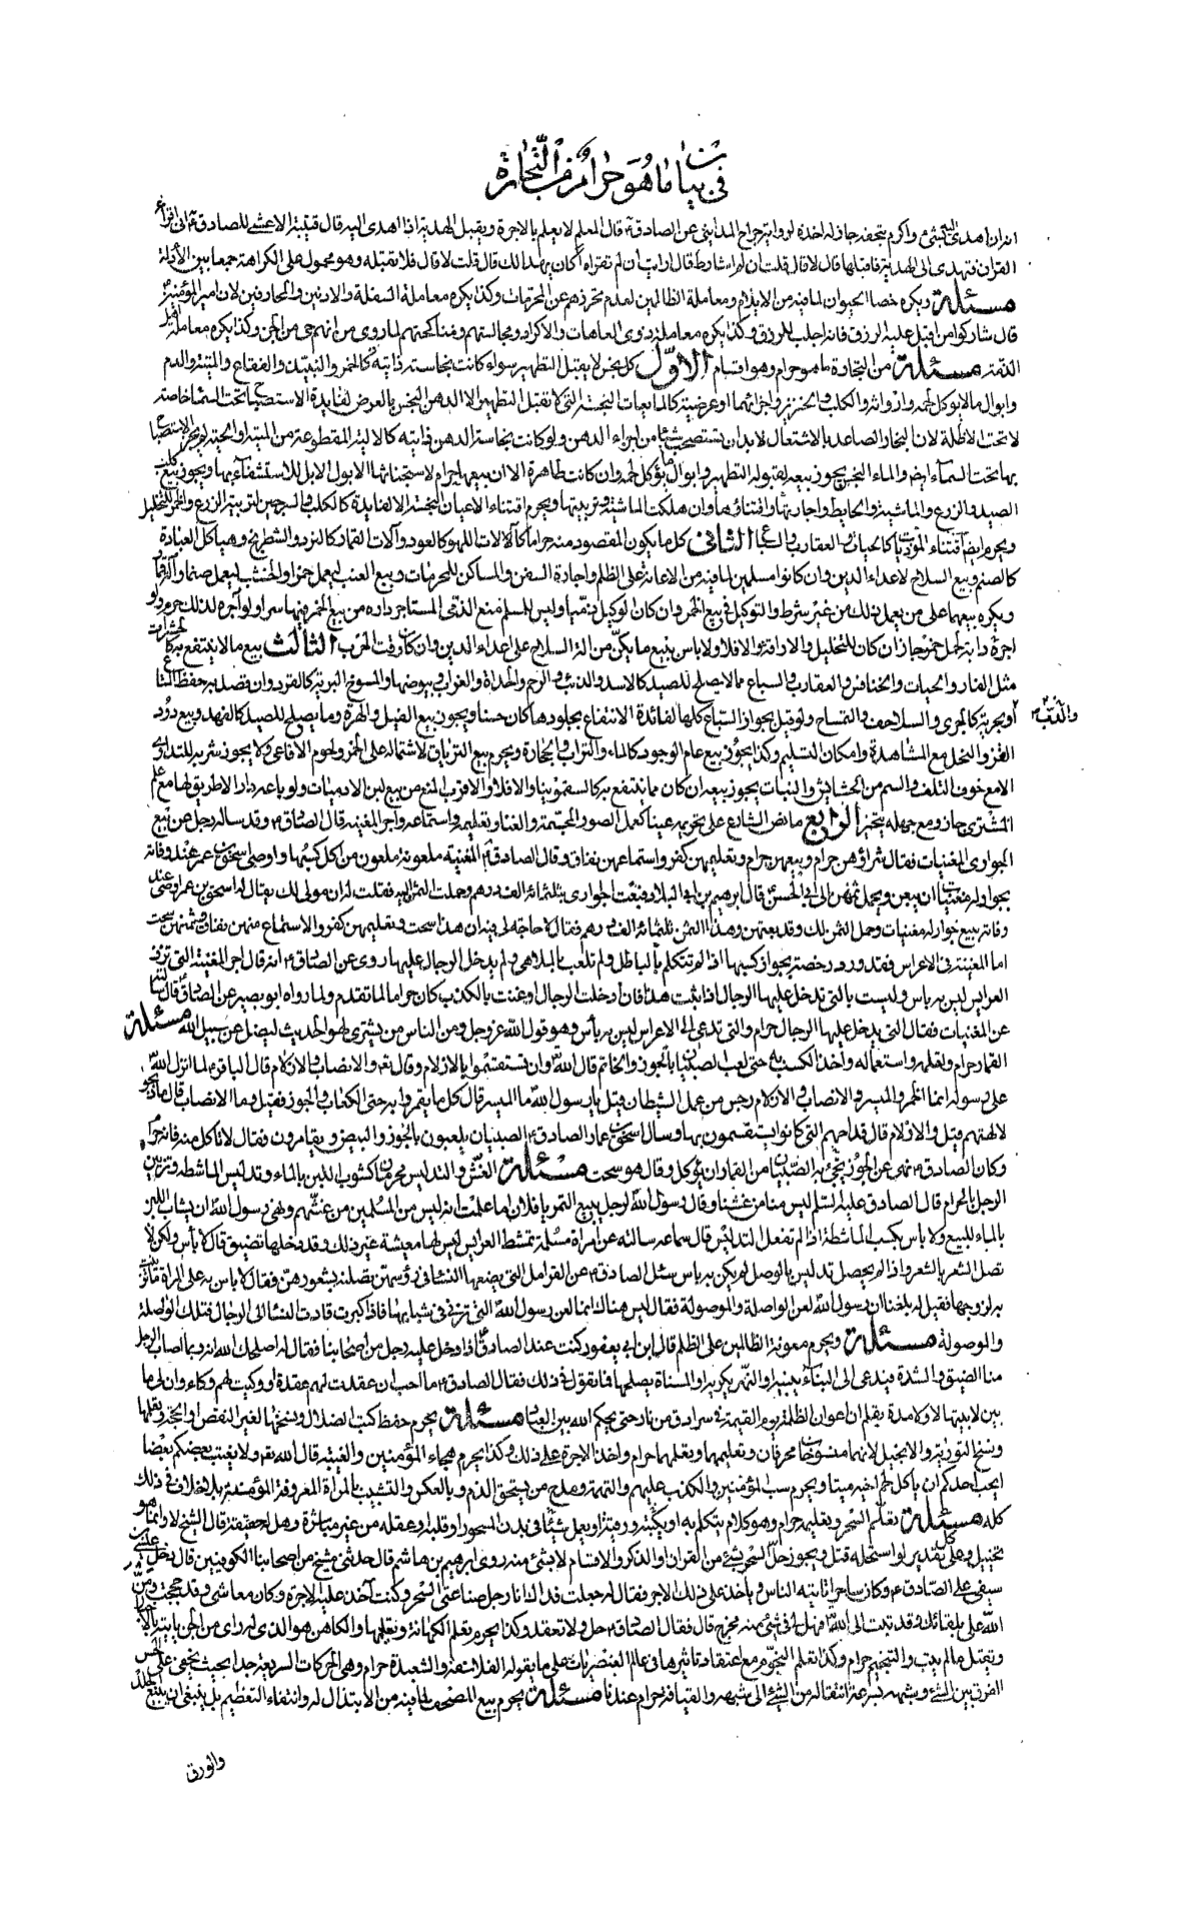 في بيان ما هو حرام من التجارة
انه ان اهدى اليه شئ واكرم بتحفة جاز له اخذه لرواية جراح المدايني عن الصادق ع قال المعلم لا يعلم بالاجرة ويقبل الهدية اذا اهدى اليه قال قتيبة الاعشى للصادق ع اني اقرأ
القران فتهدى الى الهدية فاقبلها قال لا قال قلت ان لم اشارط قال ارايت ان لم تقرأه أكان يهدى لك قال قلت لا قال فلا تقبله وهو محمول على الكراهة جمعا بين الأدلة
مسئلة ويكره خصا الحيوان لما فيه من الايلام ومعاملة الظالمين لعدم تحرزهم عن المحرمات وكذا يكره معاملة السفلة والادنين والمحارفين لان امير المؤمنين
قال شاركوا من اقبل عليه الرزق فانه اجلب للرزق وكذا يكره معاملة ذوى العاهات والاكراد ومجالستهم ومناكحتهم لما روى من انهم حى من الجن وكذا يكره معاملة اهل
الذمة مسئلة من التجارة ما هو حرام وهو اقسام الاول كل نجس لا يقبل التطهير سواء كانت نجاسته ذاتية كالخمر والنبيذ والفقاع والميتة والدم
وابوال ما لا يؤكل لحمه وارواثه والكلب والخنزير واجزائهما او عرضية كالمايعات النجسة التي لا تقبل التطهير الا الدهن النجس بالعرض لفايدة الاستصباح تحت السماء خاصة
لا تحت الاظلة لان البخار الصاعد بالاشتعال لا بد ان يستصحب شيئا من اجزاء الدهن ولو كانت نجاسة الدهن ذاتية كالالية المقطوعة من الميتة او الحية لم يجز الاستصباح
بها تحت السماء ايضا والماء النجس يجوز بيعه لقبوله التطهير وابوال ما يؤكل لحمه وان كانت طاهرة الا ان بيعها حرام لاستخباثها الا بول الابل للاستشفاء بها ويجوز بيع كلب
الصيد والزرع والماشية والحايط واجارتها واقتناؤها وان هلكت الماشية وتربيتها ويحرم اقتناء الاعيان النجسة الا لفايدة كالكلب والسرجين لتربية الزرع والخمر للتخليل
ويحرم ايضا اقتناء المؤذيات كالحيات والعقارب والسباع الثاني كل ما يكون المقصود منه حراما كآلات اللهو كالعود وآلات القمار كالنرد والشطرنج وهياكل العبادة
كالصنم وبيع السلاح لاعداء الدين وان كانوا مسلمين لما فيه من الاعانة على الظلم واجارة السفن والمساكن للمحرمات وبيع العنب ليعمل خمرا والخشب ليعمل صنما او آلة قمار
ويكره بيعهما على من يعمل ذلك من غير شرط والتوكيل في بيع الخمر وان كان الوكيل ذميا وليس للمسلم منع الذمى المستاجر داره من بيع الخمر فيها سرا ولو آجره لذلك حرم ولو
اجره دابة لحمل خمر جاز ان كان للتخليل والاراقة والا فلا ولا باس ببيع ما يكن من الة السلاح على اعداء الدين وان كان وقت الحرب الثالث بيع ما لا ينتفع به كالحشرات
مثل الفار والحيات والخنافس والعقارب والسباع مما لا يصلح للصيد كالاسد والذئب والرخم والحداة والغراب وبيوضها والمسوخ البرية كالقرد وان قصد به حفظ المتاع
والدب
او بحرية كالجري والسلاحف والتمساح ولو قيل بجواز السباع كلها لفائدة الانتفاع بجلودها كان حسنا ويجوز بيع الفيل والهرة وما يصلح للصيد كالفهد وبيع دود
القز والنحل مع المشاهدة وامكان التسليم وكذا يجوز بيع عام الوجود كالماء والتراب والحجارة ويحرم بيع الترياق لاشتماله على الخمر ولحوم الافاعى ولا يجوز شربه للتداوى
الا مع خوف التلف والسم من الحشايش والنبات يجوز بيعه ان كان مما ينتفع به كالسقمونيا والا فلا والاقرب المنع من بيع لبن الادميات ولو باعه دارا لا طريق لها مع علم
المشترى جاز ومع جهله يتخير الرابع ما نص الشارع على تحريمه عينا كعمل الصور المجسمة والغناء وتعليمه واستماعه واجر المغنية قال الصادق ع وقد ساله رجل عن بيع
الجوارى المغنيات فقال شراؤهن حرام وبيعهن حرام وتعليمهن كفر واستماعهن نفاق وقال الصادق ع المغنية ملعونة ملعون من اكل كسبها واوصى اسحق بن عمر عند وفاته
بجوار له مغنيات ان يبعن ويحمل ثمنهن الى ابي الحسن ع قال ابرهيم بن ابي البلاد فبعت الجوارى بثلثمائة الف درهم وحملت الثمن اليه فقلت له ان مولى لك يقال له اسحق بن عمر اوصى عند
وفاته ببيع جوار له مغنيات وحمل الثمن لك وقد بعتهن وهذا الثمن ثلثمائة الف درهم فقال لا حاجة لى فيه ان هذا سحت وتعليمهن كفر والاستماع منهن نفاق وثمنهن سحت
اما المغنية في الاعراس فقد ورد رخصة بجواز كسبها اذا لم تتكلم بالباطل ولم تلعب بالملاهى ولم يدخل الرجال عليها روى عن الصادق ع انه قال اجر المغنية التى تزف
العرايس ليس به باس وليست بالتى تدخل عليها الرجال اذا ثبت هذا فان دخلت الرجال او غنت بالكذب كان حراما لما تقدم ولما رواه ابو بصير عن الصادق ع قال سالته
عن المغنيات فقال التى يدخل عليها الرجال حرام والتى تدعى الى الاعراس ليس به بأس وهو قول الله عز وجل ومن الناس من يشترى لهو الحديث ليضل عن سبيل الله مسئلة
القمار حرام وتعلمه واستعماله واخذ الكسب به حتى لعب الصبيان بالجوز والخاتم قال الله وان تستقسموا بالازلام وقال تعه والانصاب والازلام قال الباقر ع لما انزل الله
على رسوله انما الخمر والميسر والانصاب والازلام رجس من عمل الشيطان قيل يا رسول الله ما الميسر قال كل ما يقمروا به حتى الكعاب والجوز فقيل وما الانصاب قال ما ذبحوا
لالهتهم قيل والازلام قال قداحهم التى كانوا يستقسمون بها وسال اسحق بن عمار الصادق ع الصبيان يلعبون بالجوز والبيض ويقامرون فقال لا تاكل منه فانه حرام
وكان الصادق ع نهى عن الجوز يجئ به الصبيان من القمار ان يؤكل وقال هو سحت مسئلة الغش والتدليس محرمان كشوب اللبن بالماء وتدليس الماشطة وتزيين
الرجل بالحرام قال الصادق عليه السلم ليس منا من غشنا وقال رسول الله لرجل يبيع التمر يا فلان اما علمت انه ليس من المسلمين من غشهم ونهى رسول الله ان يشاب اللبن
بالماء للبيع ولا باس بكسب الماشطة اذا لم تفعل التدليس قال سماعة سالته عن امراة مسلمة تمشط العرايس ليس لها معيشة غير ذلك وقد دخلها تضيق قال لا بأس ولكن لا
تصل الشعر بالشعر واذا لم يحصل تدليس بالوصل لم يكن به باس سئل الصادق ع عن القرامل التى يضعها النساء في رؤسهن يصلنه بشعورهن فقال لا باس به على المراة ما تزينت
به لزوجها فقيل له بلغنا ان رسول الله لعن الواصلة والموصولة فقال ليس هناك انما لعن رسول الله التى تزنى في شبابها فاذا كبرت قادت النساء الى الرجال فتلك الواصلة
والموصولة مسئلة ويحرم معونة الظالمين على الظلم قال ابن ابي يعفور كنت عند الصادق ع اذا دخل عليه رجل من اصحابنا فقال له اصلحك الله انه ربما اصاب الرجل
منا الضيق والشدة فيدعى الى البناء يبنيه او النهر يكريه او المسناة يصلحها فما تقول في ذلك فقال الصادق ع ما احب ان عقدت لهم عقدة او وكيت لهم وكاء وان لى ما
بين لابيتها لا ولا مدة بقلم ان اعوان الظلمة يوم القيمة في سرادق من نار حتى يحكم الله بين العباد مسئلة يحرم حفظ كتب الضلال ونسخها لغير النقض او الحجة وتعلمها
ونسخ التورية والانجيل لانهما منسوخان محرفان وتعليمهما وتعلمهما حرام واخذ الاجرة على ذلك وكذا يحرم هجاء المؤمنين والغيبة قال الله تع ولا يغتب بعضكم بعضا
ايحب احدكم ان ياكل لحم اخيه ميتا ويحرم سب المؤمنين والكذب عليهم والتهمة ومدح من يستحق الذم وبالعكس والتشبيب بالمراة المعروفة المؤمنة بلا خلاف في ذلك
كله مسئلة تعلم السحر وتعليمه حرام وهو كلام يتكلم به او يكتبه او رقية او يعمل شيئا في بدن المسحور او قلبه او عقله من غير مباشرة وهل له حقيقة قال الشيخ لا وانما هو
تخييل وعلى كل تقدير لو استحله قتل ويجوز حل السحر بشئ من القران والذكر والاقسام لا بشئ منه روى ابرهيم بن هاشم قال حدثنى شيخ من اصحابنا الكوفيين قال دخل عيسى بن
سيفى على الصادق ع وكان ساحرا ياتيه الناس وياخذ على ذلك الاجر فقال له جعلت فداك انا رجل صناعتى السحر وكنت آخذ عليه الاجرة وكان معاشى وقد حججت ومن
الله على بلقائك وقد تبت الى الله فهل لى في شئ منه مخرج قال فقال الصادق ع حل ولا تعقد وكذا يحرم تعلم الكهانة وتعليمها والكاهن هو الذى له راى من الجن ياتيه بالاخبار
ويقتل ما لم يتب والتنجيم حرام وكذا تعلم النجوم مع اعتقاد تاثيرها في عالم العنصريات على ما يقوله الفلاسفة والشعبذة حرام وهى الحركات السريعة جدا بحيث يخفى على الحس
الفرق بين الشئ وشبهه لسرعة انتقاله من الشئ الى شبهه والقيافة حرام عندنا مسئلة يحرم بيع المصحف لما فيه من الابتذال له وانتفاء التعظيم بل ينبغى ان يبيع الجلد
والورق